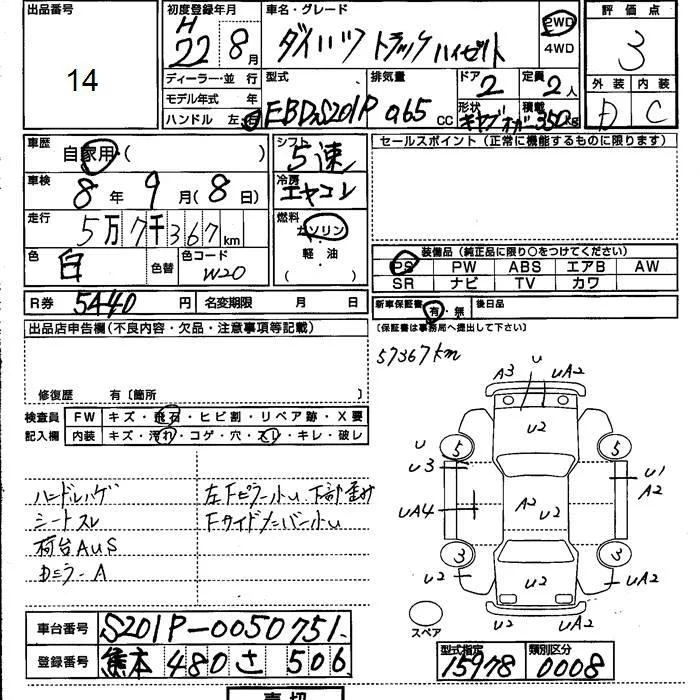 出品番号
14
初度登録年月
H22年 8月
車名・グレード
ダイハツ トラック ハイゼット
2WD
4WD
評価点
3
ディーラー・並行
モデル年式 年
ハンドル 左・右
型式
EBD-S201P
排気量
065 CC
ドア
2
定員
2人
形状
キャブオーバー
積載
350kg
外装
D
内装
C
車歴
自家用・( )
シフト
5速
セールスポイント(正常に機能するものに限ります)
車検
8年 9月(8日)
冷房
エヤコン
走行
5万7千367km
燃料
ガソリン
軽・油
( )
色
白
色替
色コード
W20
装備品(純正品に限り○をつけてください)
PS PW ABS エアB AW
SR ナビ TV カワ
R券 5440円 名変期限 月 日
新車保証書 有・無 後日品
(保証書は事務局へ提出して下さい)
出品店申告欄(不良内容・欠品・注意事項等記載)
57367km
修復歴 有〔箇所 〕
検査員 FW キズ・飛石・ヒビ割・リペア跡・X要
記入欄 内装 キズ・汚れ・コゲ・穴・スレ・キレ・破レ
ハンドルハゲ
左Fピラー小U 下部歪み
シートスレ
Fサイドメンバー小U
荷台AUS
Dミラ-A
A3 U UA2
U2
U 5 5
U3 U1
A2
UA4 A2 U2
3 3
U2 U2 UA2
U2 UA2
スペア
車台番号 S201P-0050751
登録番号 熊本 480 さ 506
型式指定 15978
類別区分 0008
売切